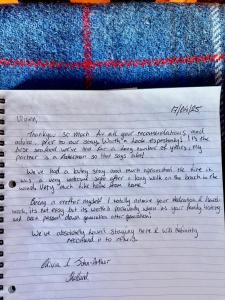 17/04/25
Vivien,
Thankyou so much for all your recommendations and
advice, prior to our stay. Worth a look especially! It's the
best seafood we've had for a long number of years, my
partner is a fisherman so that says alot!
We've had a lovely stay and much appreciated the fire it
was a very welcome sight after a long walk on the beach in the
wind. Very much like home from home.
Being a crofter myself I totally admire your dedication & hard
work, its not easy but its worth it particularly when its your family history
and been passed down generation after generation!
We've absolutely loved staying here & will definitely
recommend it to others.
& John-Arthur
Shetland